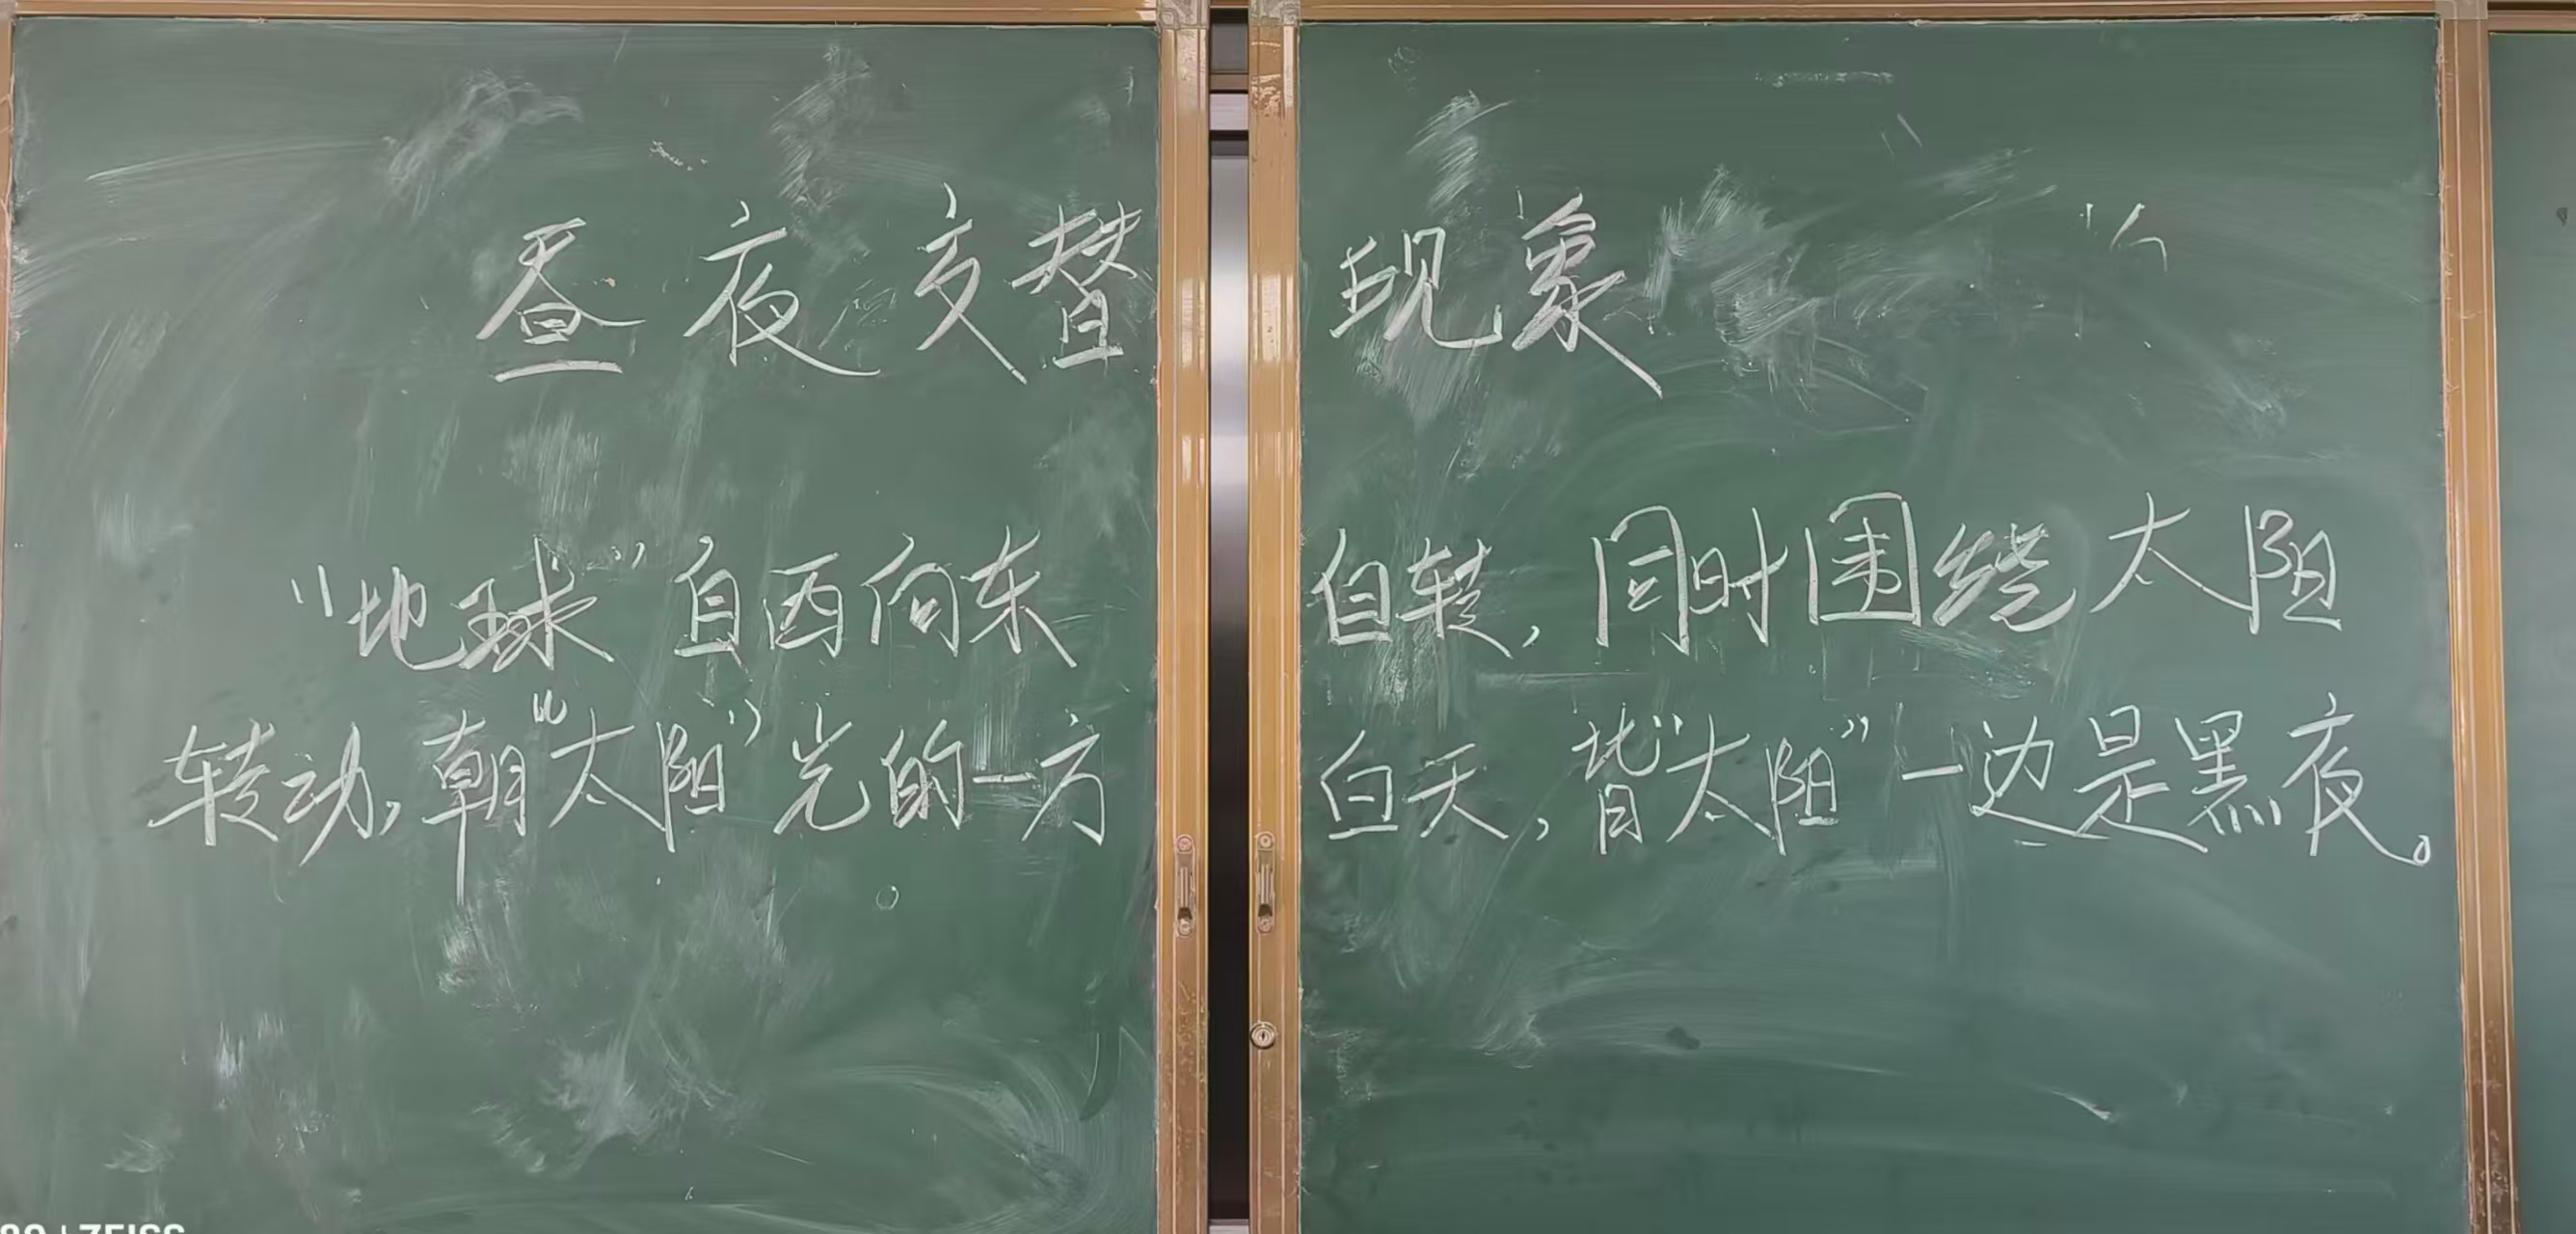 昼夜交替现象
“地球”自西向东自转，同时围绕太阳
转动，朝“太阳”光的一方白天，背“太阳”一边是黑夜。
ZEISS